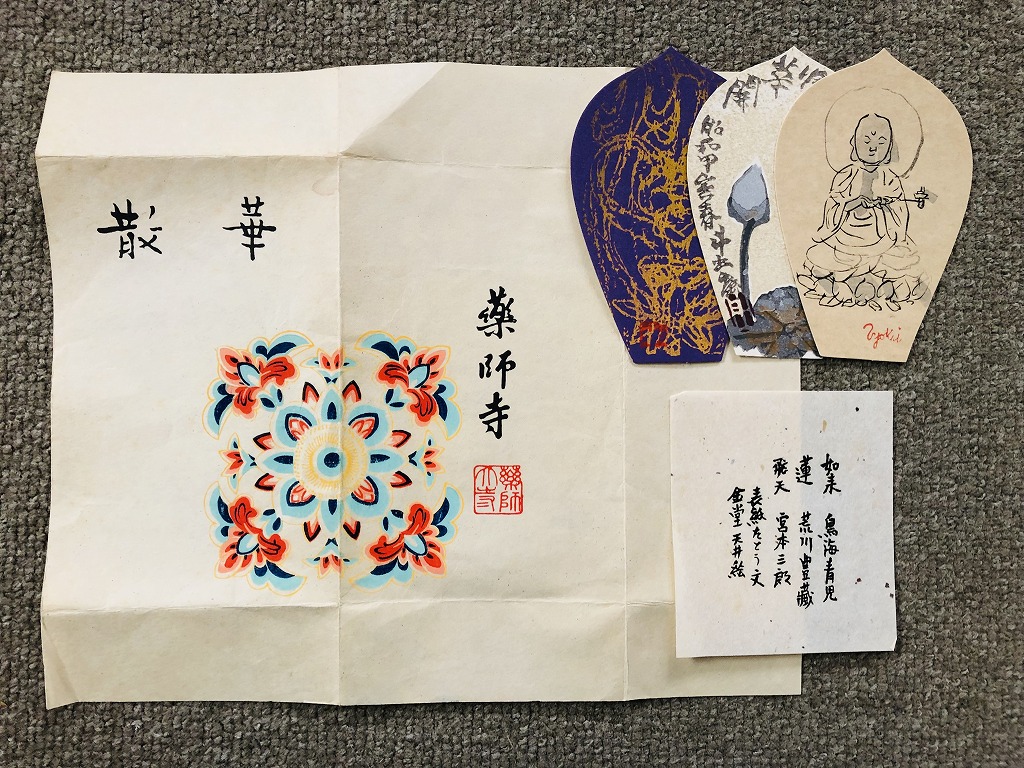 散華
藥師寺
藥師大寺
開華
昭和甲寅春
如来 鳥海青児
蓮 荒川豊藏
飛天 宮本三郎
表紙たとう文
金堂 天井絵